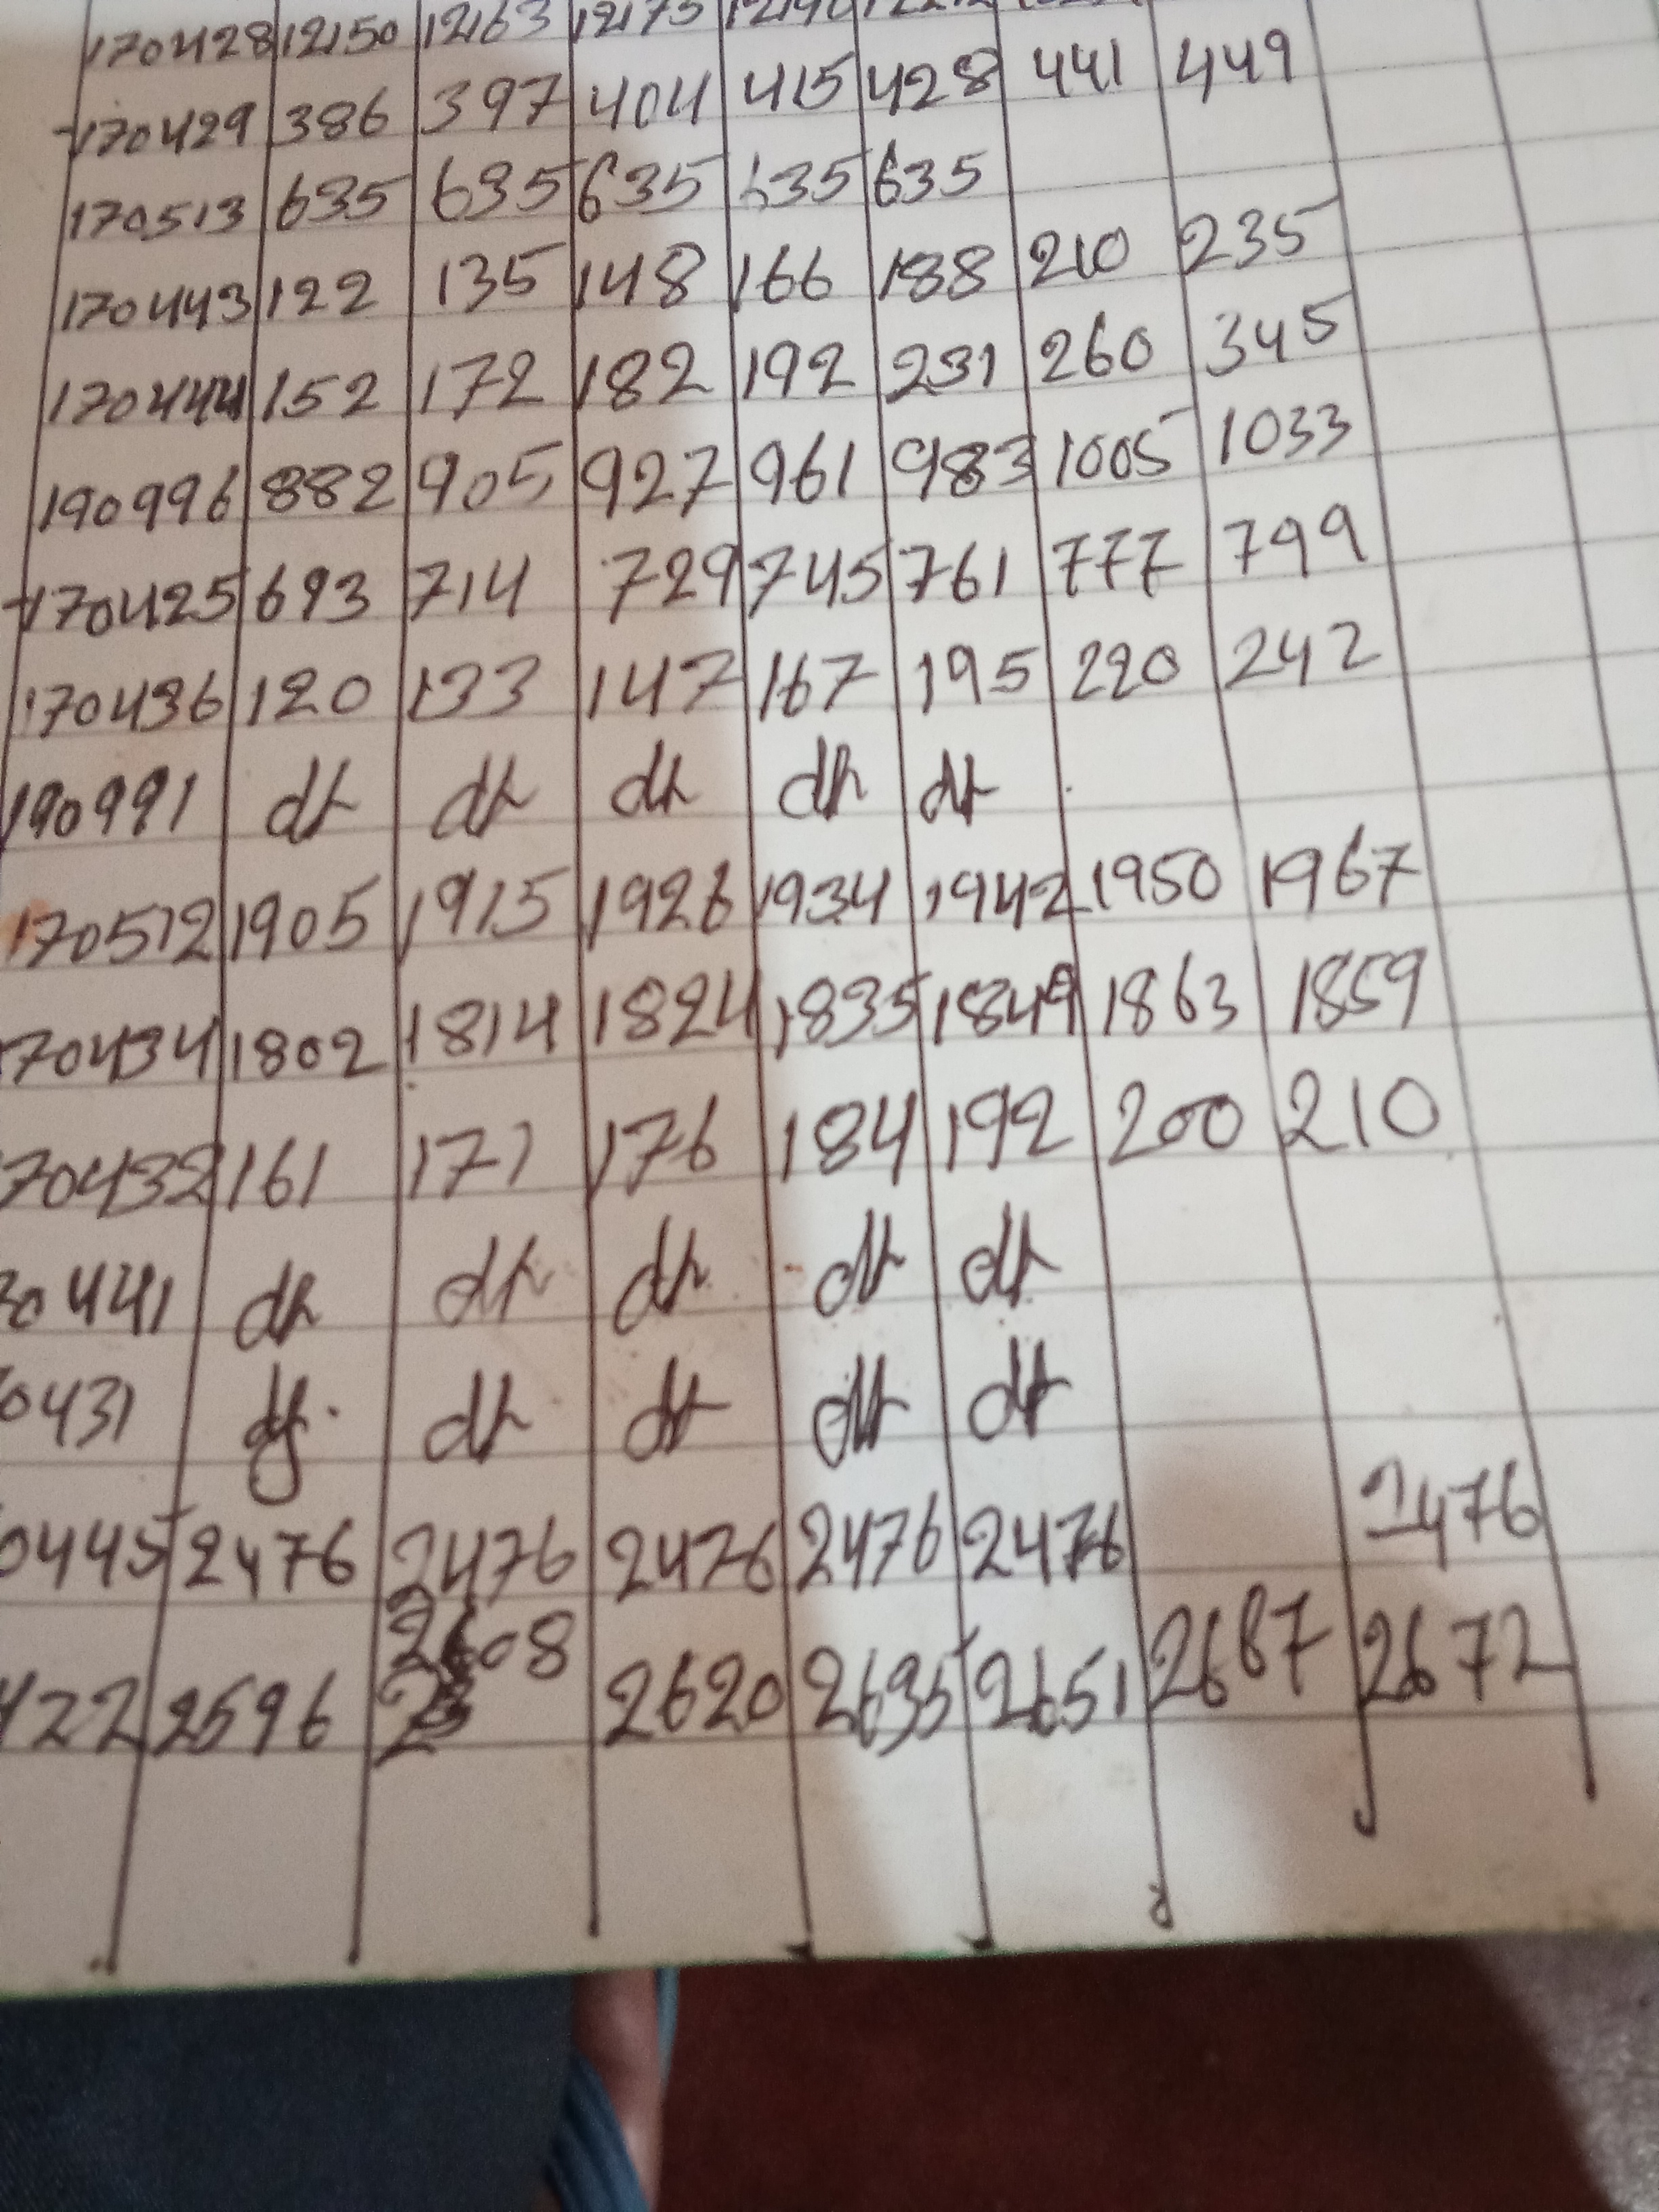 170428 12150 12163 12175
170429 386 397 404 415 428 441 449
170513 635 635 635 635 635
170443 122 135 148 166 188 210 235
170444 152 172 182 192 231 260 345
190996 882 905 927 961 983 1005 1033
170425 693 714 729 745 761 777 799
170436 120 133 147 167 195 220 242
190991 dt dt dt dt dt
170512 1905 1915 1926 1934 1942 1950 1967
70434 1802 1814 1824 1835 1849 1863 1859
70432 161 171 176 184 192 200 210
0441 dt dt dt dt dt
0431 dt dt dt dt
0445 2476 2476 2476 2476 2476 2476
422 2596 2608 2620 2635 2651 2687 2672